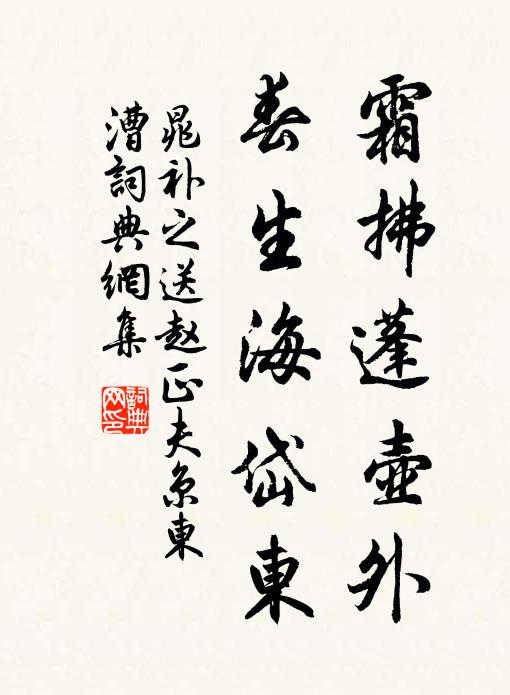 霜拂蓬壺外
春生海岱東
晁补之送赵正夫京東
漕詞典網集
詞典
网印